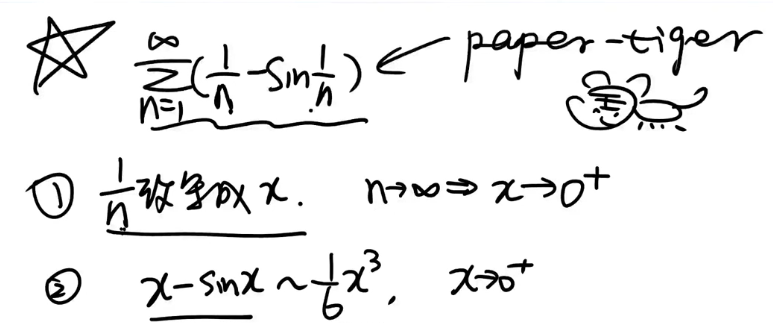 ☆ \sum_{n=1}^{\infty}(\frac{1}{n}-\sin\frac{1}{n}) ← paper-tiger
① \frac{1}{n}改写成x. n→∞⇒x→0^+
② x-\sin x\sim\frac{1}{6}x^3, x→0^+